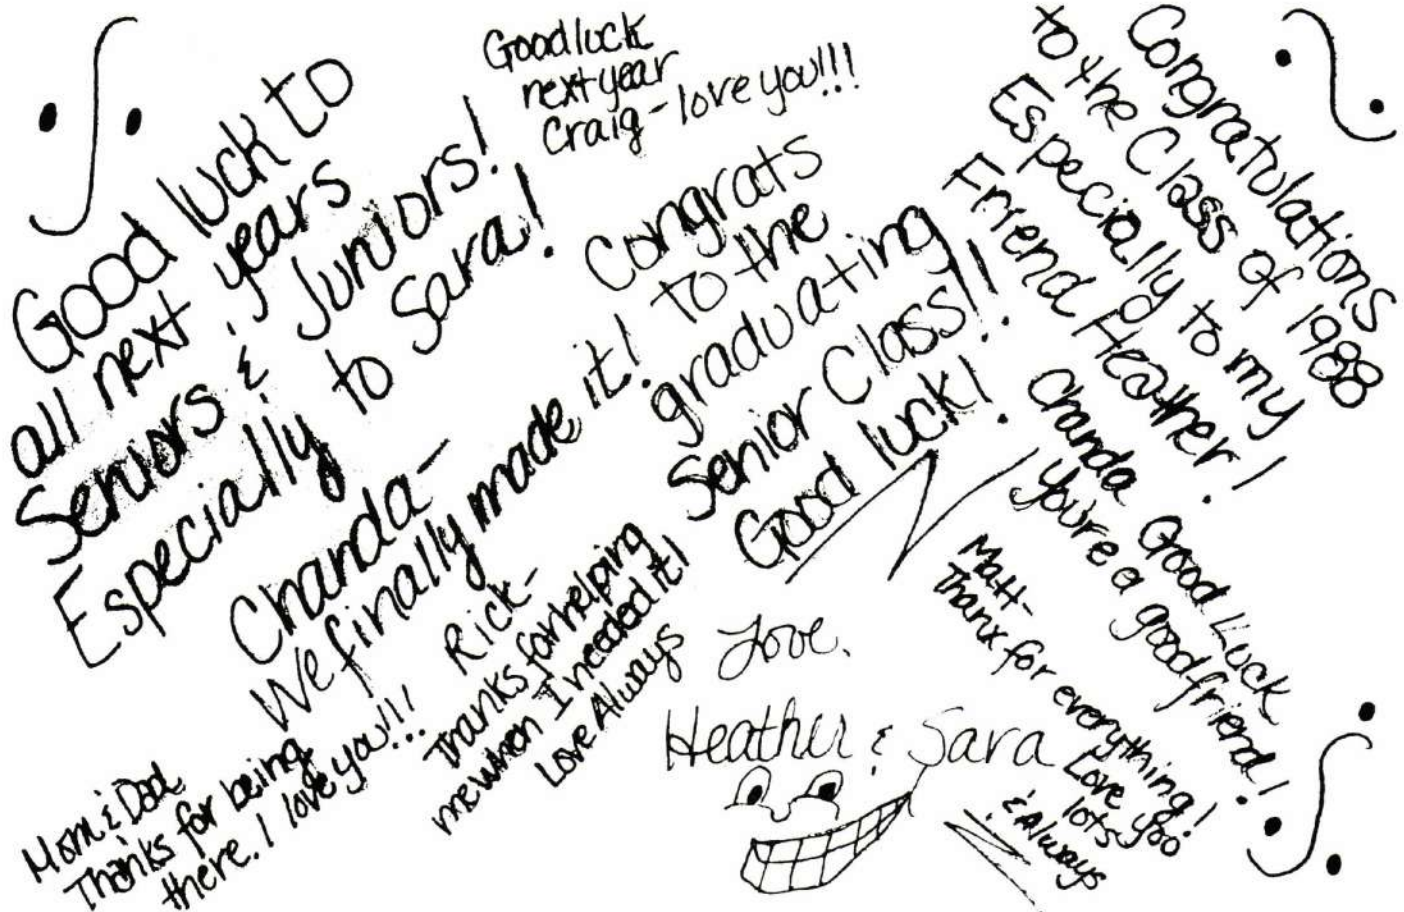 Good luck to
all next years
Seniors & Juniors!
Especially to Sara!
Good luck
next year
Craig - love you!!!
Congrats
to the
graduating
Senior Class!!
Good luck!
Congratulations
to the Class of 1988
Especially to my
Friend Heather!
Chanda -
We finally made it!
Chanda Good Luck
You're a good friend!
Matt -
Thanx for everything!
Love you
lots
& Always
Rick -
Thanks for helping
me when I needed it!
Love Always
Mom & Dad,
Thanks for being
there. I love you!!!
Love,
Heather & Sara